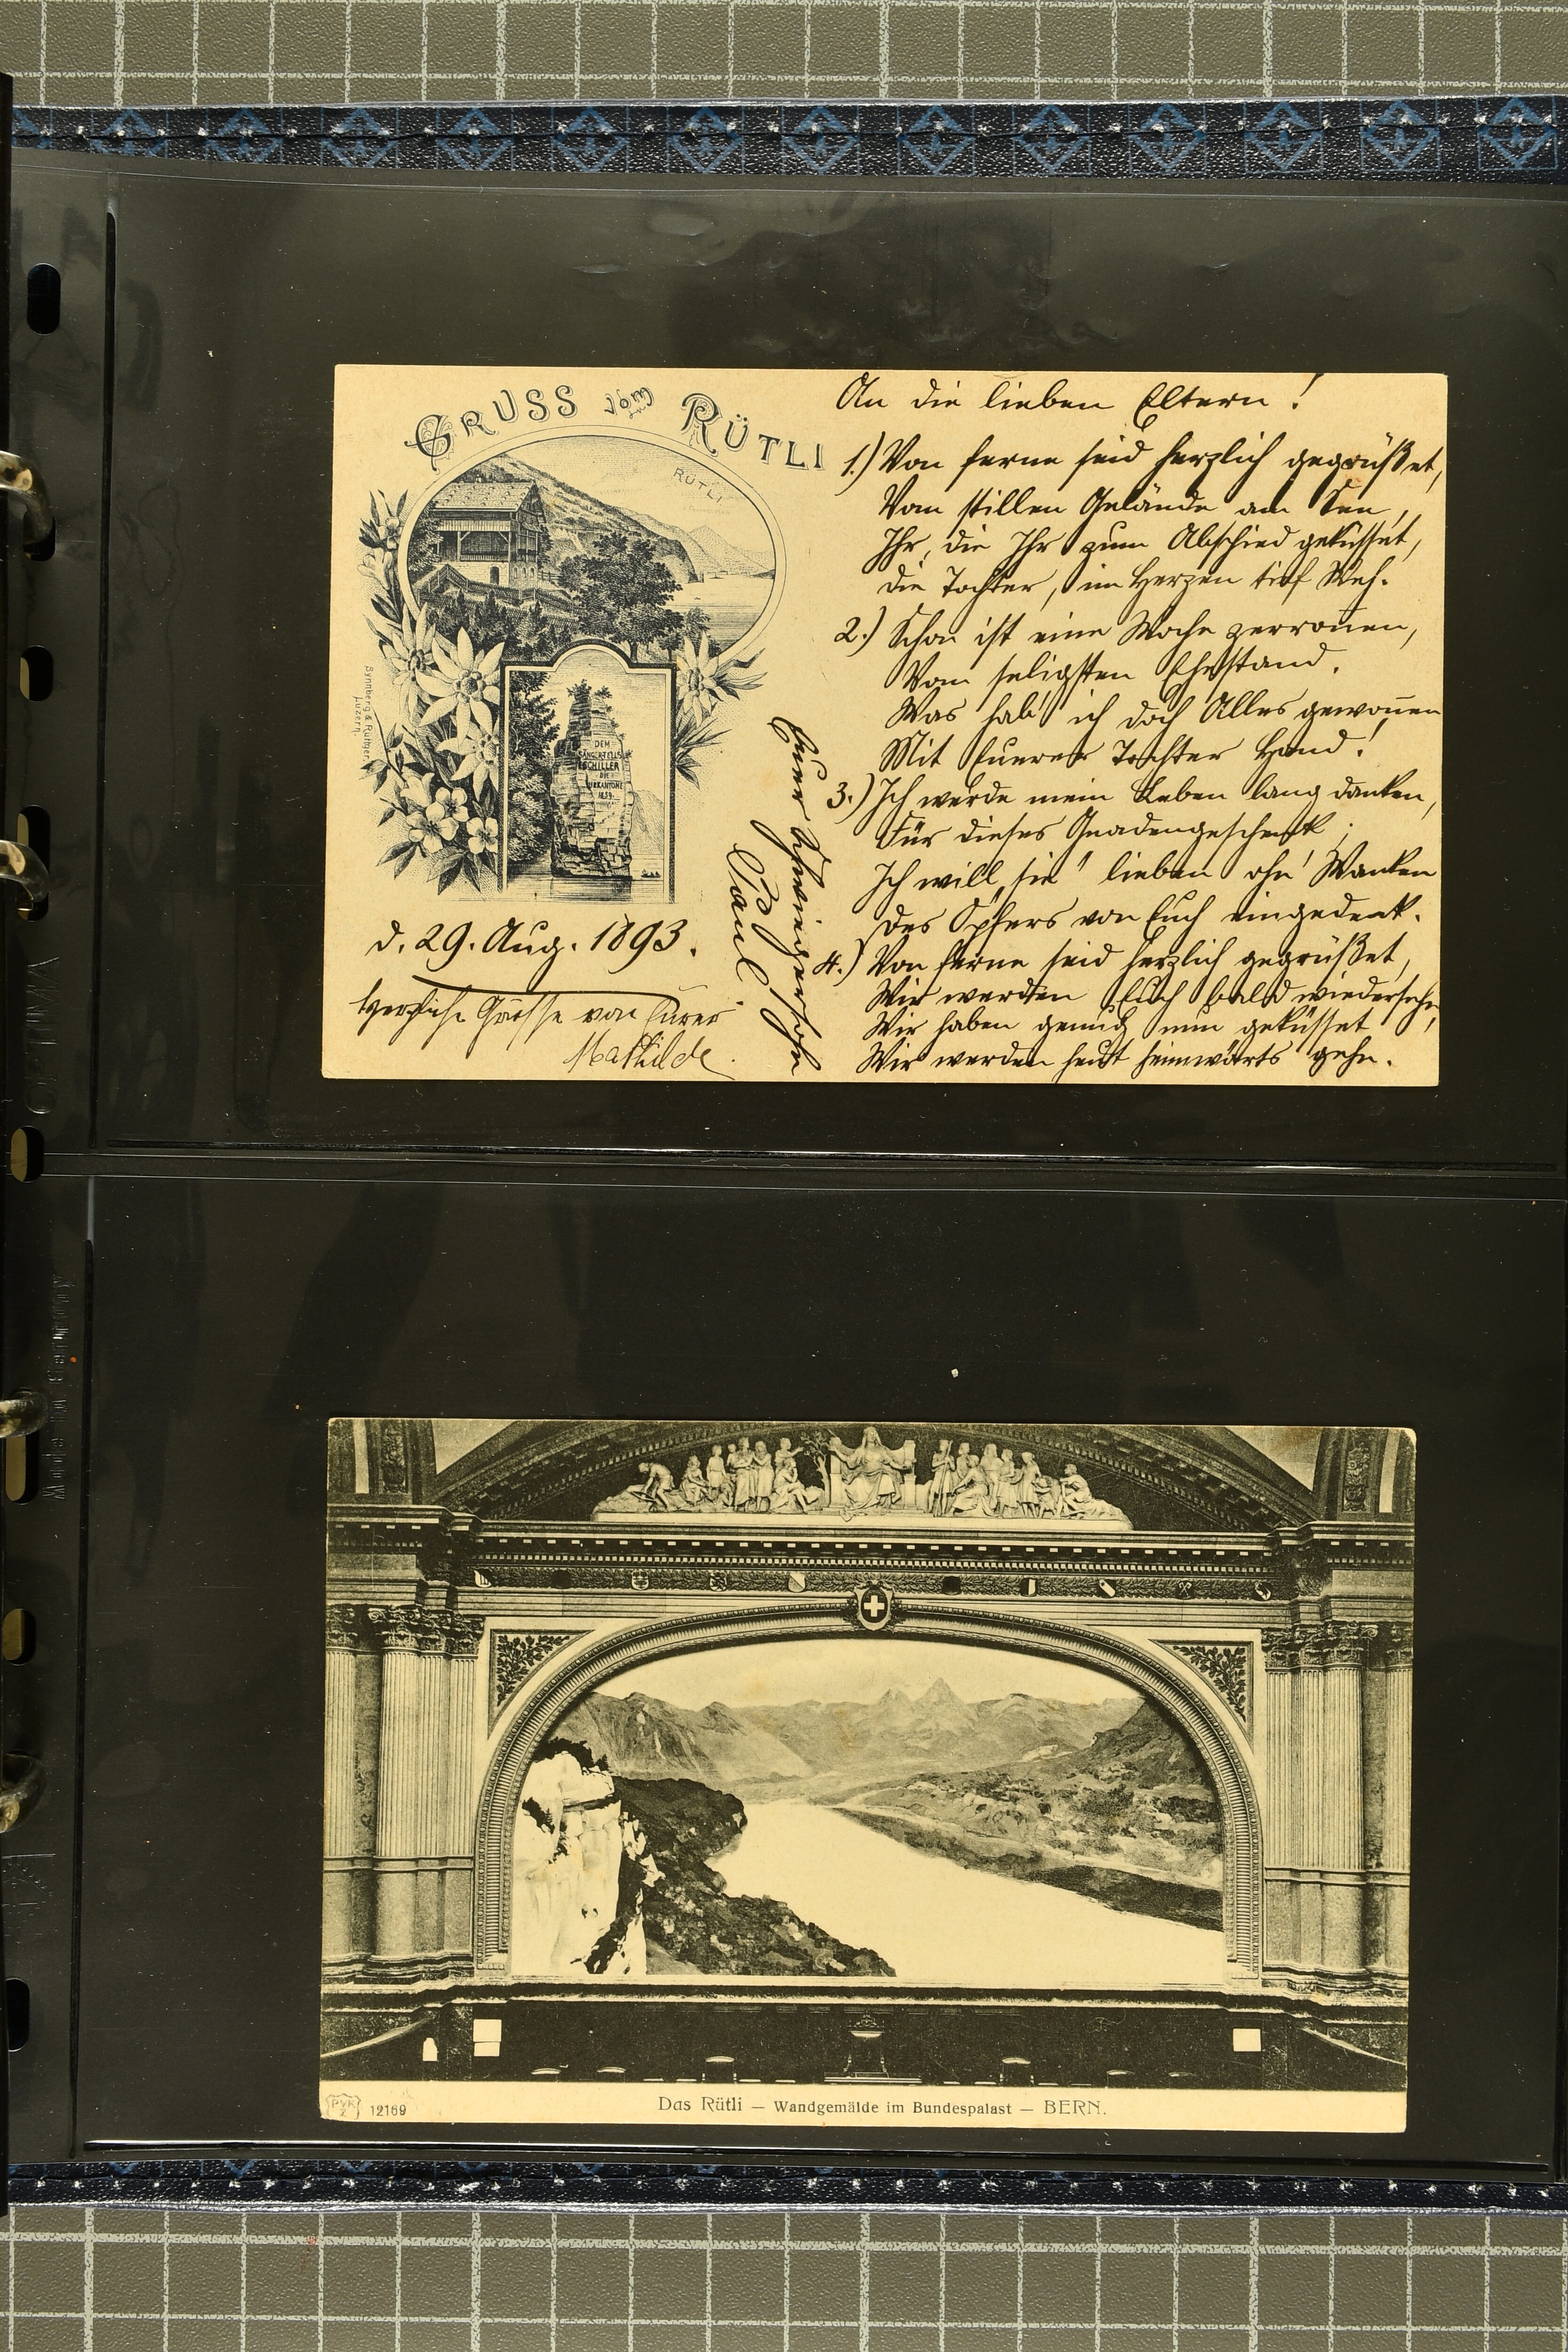 GRUSS vom RÜTLI
RÜTLI
DEM
SÄNGER TELLS
F. SCHILLER
DIE
URKANTONE
1859
Bynnberg & Rüttger
Luzern
d. 29. Aug. 1893.
Herzliche Grüsse von Eurer
Mathilde.
Euer Schwiegersohn
Paul.
An die lieben Eltern!
1.) Von ferne seid herzlich gegrüßet,
Vom stillen Gelände am See,
Ihr, die Ihr zum Abschied geküsset,
die Tochter, im Herzen tief Weh.
2.) Schon ist eine Woche zerroñen,
Vom seligsten Ehestand.
Was hab' ich doch Alles gewoñen
Mit Euerer Tochter Hand!
3.) Ich werde mein Leben lang danken,
Für dieses Gnadengeschenk;
Ich will „sie" lieben ohn' Wanken
Des Opfers von Euch eingedenk.
4.) Von ferne seid herzlich gegrüßet,
Wir werden Euch bald wiedersehn,
Wir haben genug nun geküsset
Wir werden heut heimwärts gehn.
PVK
Z
12169
Das Rütli — Wandgemälde im Bundespalast — BERN.